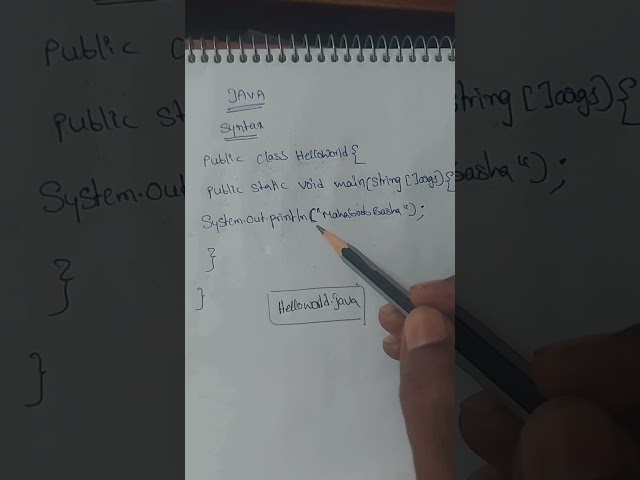 JAVA
Syntax
Public class Helloworld{
Public static void main(String []args){
System.out.println("MahaboobBasha");
}
}
Helloworld.java